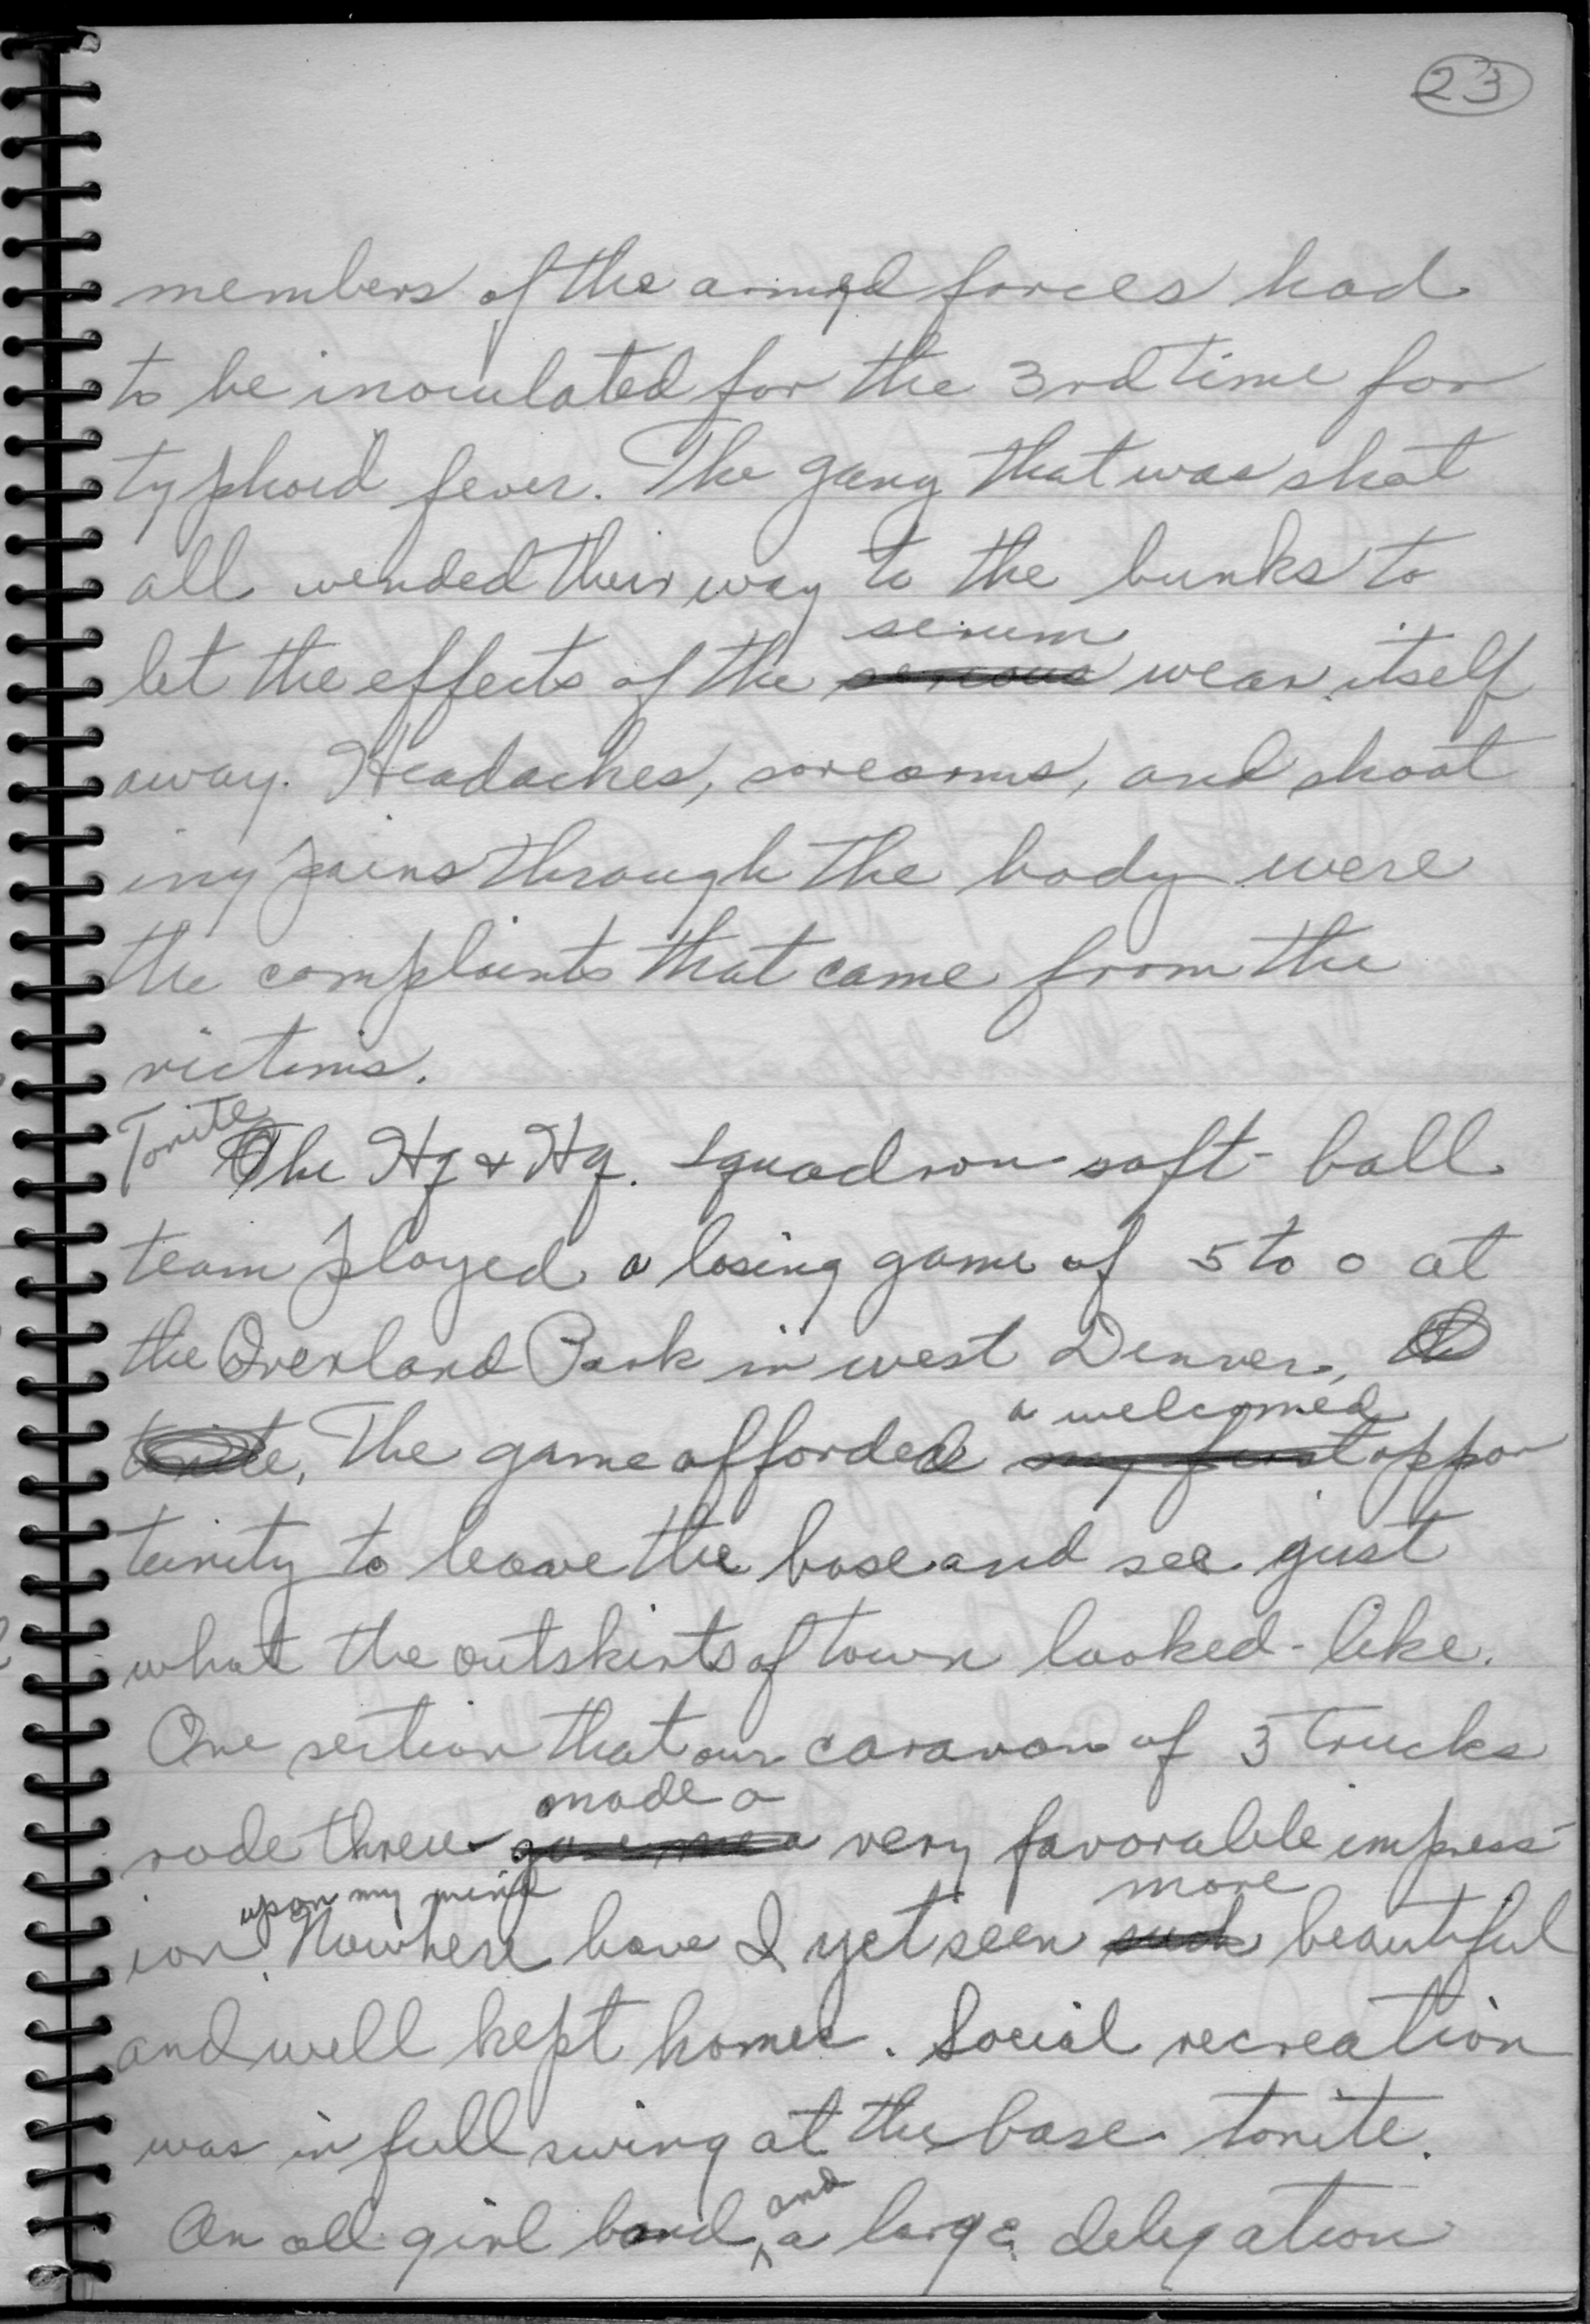 23
members of the armed forces had
to be inoculated for the 3rd time for
typhoid fever. The gang that was shot
all wended their way to the bunks to
serum
let the effects of the serious wear itself
away. Headaches, sore arms, and shoot
ing pains through the body were
the complaints that came from the
victims.
Tonite
The Hq & Hq. Squadron soft-ball
team played a losing game of 5 to 0 at
the Overland Park in west Denver,
a welcomed
tonite. The game afforded my first oppor
tunity to leave the base and see just
what the outskirts of town looked-like.
One section that our caravan of 3 trucks
made a
rode threu gave me a very favorable impress-
upon my mind more
ion. Nowhere have I yet seen such beautiful
and well kept homes. Social recreation
was in full swing at the base tonite.
and
An all-girl band, a large delegation